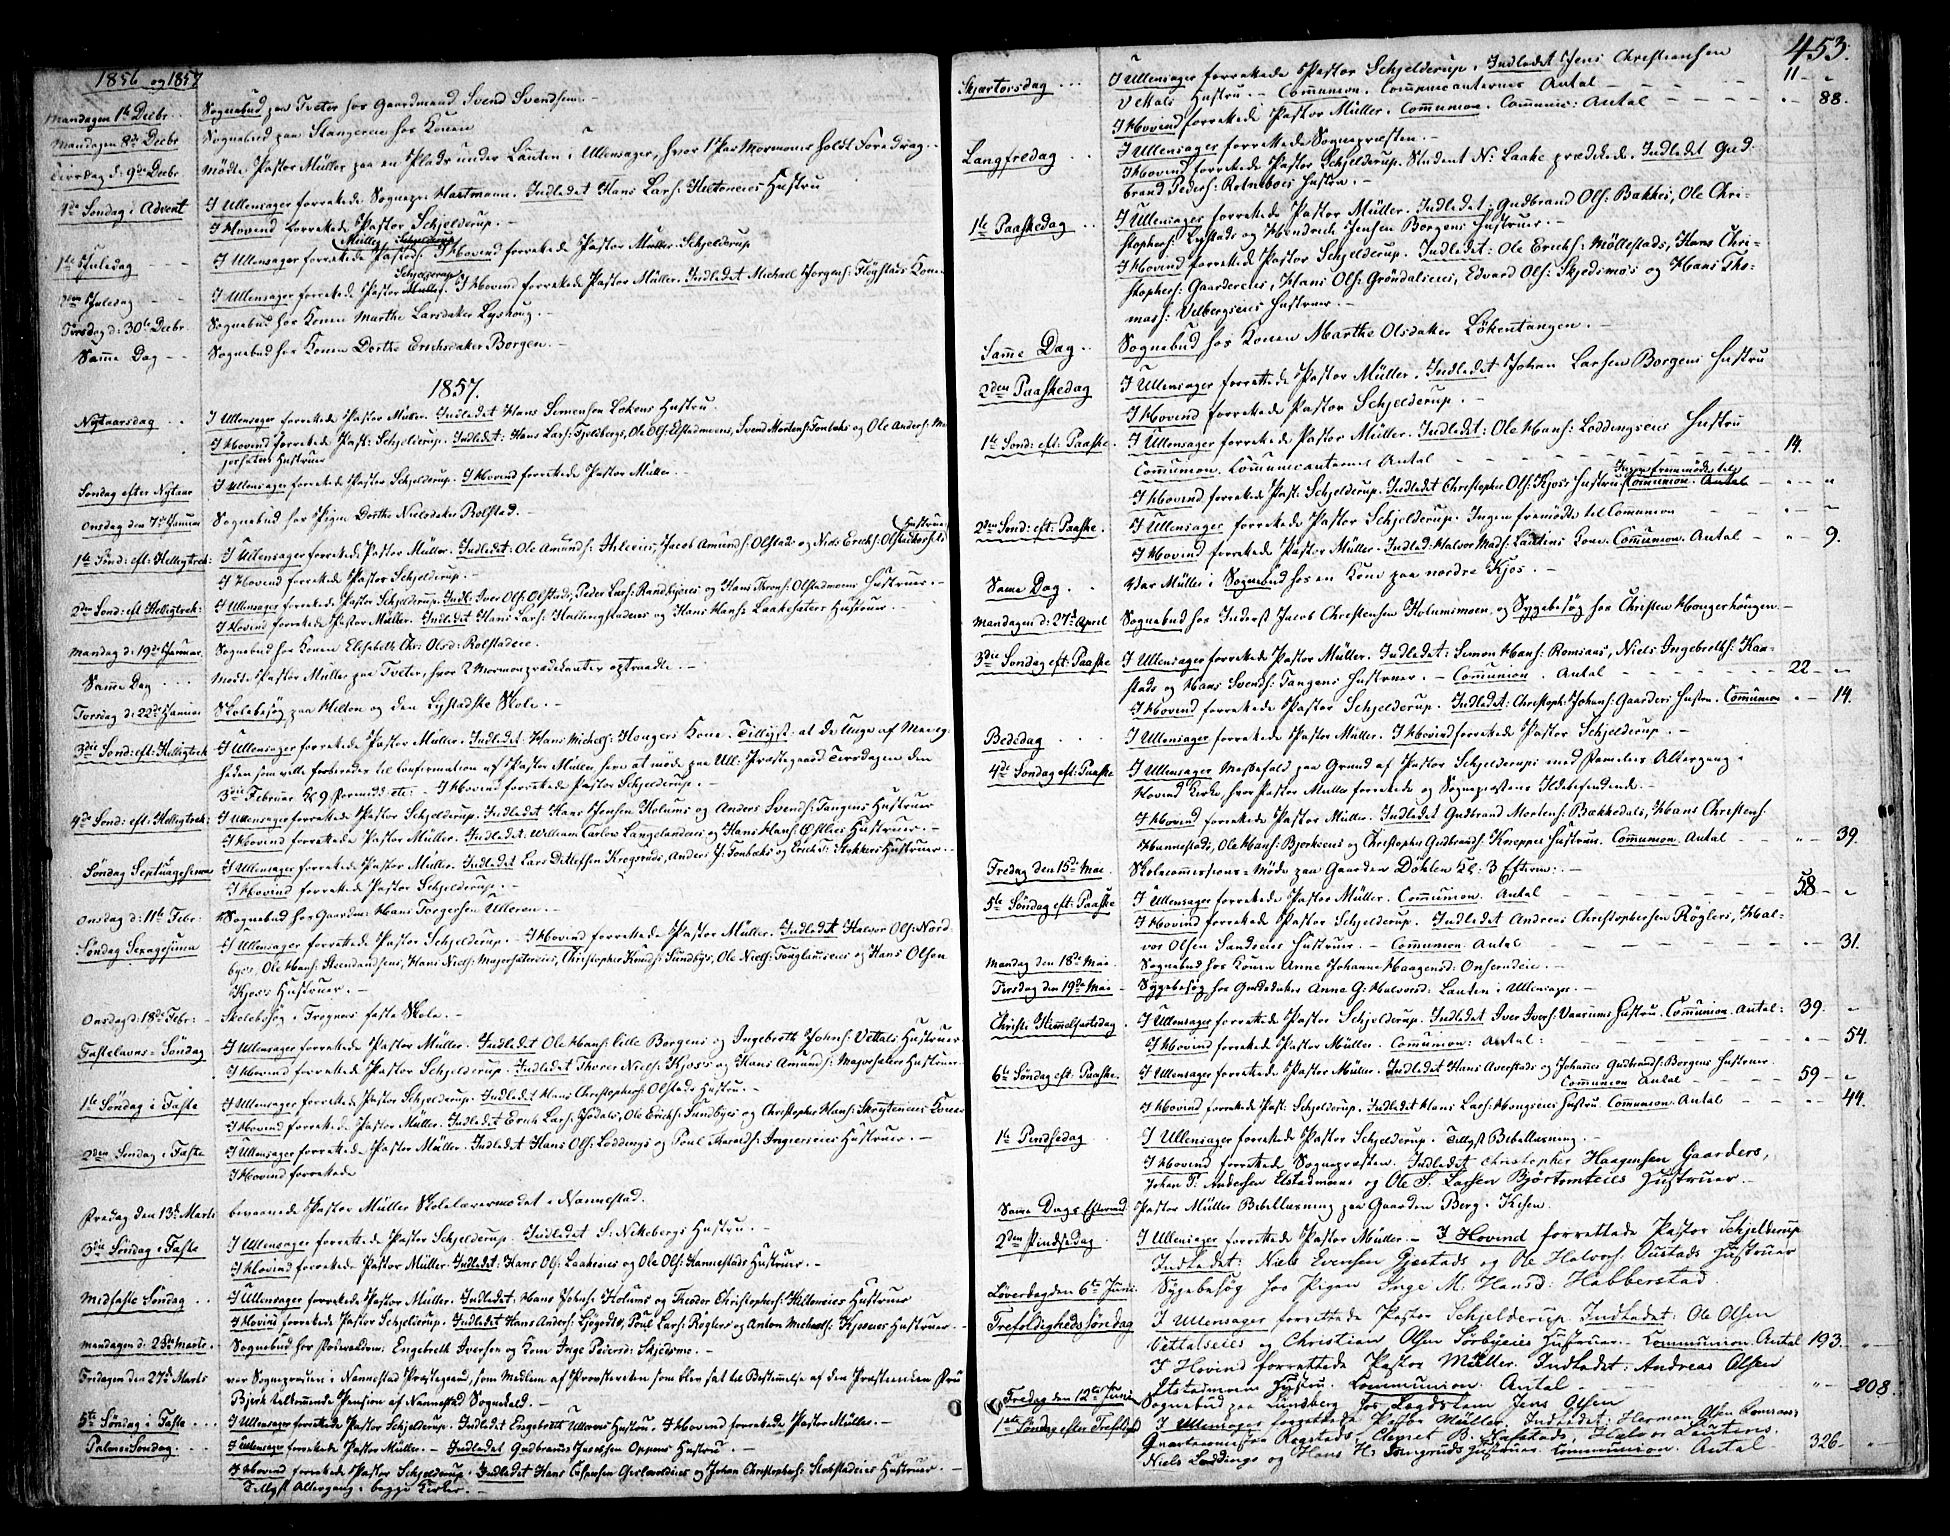 1856 og 1857
Mandagen 1ste Decbr. Sognebud paa Tveter hos Gaardmand Svend Svendsen.
Mandagen 8de Decbr Sognebud paa Stangeren hos Konen
Tirsdag d: 9de Decbr. Mødte Pastor Müller paa en Plads under Lauten i Ullensager, hvor 1 Par Mormoner holdt Foredrag.
4de Søndag i Advent I Ullensager forrettede Sognepr. Hartmann. Indledet Hans Lars: Hiltoneies Hustru
I Hovind forrettede Pastor Schjelderup.
1ste Juledag I Ullensager forrettede Pastor Müller. I Hovind forrettede Pastor Schjelderup
2den Juledag I Ullensager forrettede Pastor Schjelderup. I Hovind forrettede Pastor Müller. Indledet Michael Jørgens: Fløgstads Kone
Tirsdag d: 30te Decbr Sognebud hos Konen Marthe Larsdatter Lyshoug.
Samme Dag Sognebud hos Konen Dorthe Erichsdatter Borgen.
1857.
Nytaarsdag I Ullensager forrettede Pastor Müller. Indledet Hans Simensen Løkens Hustru.
I Hovind forrettede Past: Schjelderup. Indledet: Hans Lars: Fjeldbergs, Ole Ols: Elstadmoens, Svend Mortens: Fonbæks og Ole Anders: Ma-
jorsæters Hustruer
Søndag efter Nytaar I Ullensager forrettede Pastor Schjelderup. I Hovind forrettede Pastor Müller.
Onsdag den 7de Januar Sognebud hos Pigen Dorthe Nielsdatter Rolfstad.
1ste Sønd: eft: Helligtrek: I Ullensager forrettede Pastor Müller. Indledet: Ole Amunds: Ihleeies, Jacob Amunds: Olstad og Niels Erichs: Hustruer
I Hovind forrettede Pastor Schjelderup.
2den Sønd: eft Helligtrek: I Ullensager forrettede Pastor Schjelderup. Indl: Iver Ols: Olstads, Peder Lars: Randbyeies og Hans Thons: Olstadmoens Hustruer.
I Hovind forrettede Pastor Müller. Indledet Hans Lars: Hallingstadeies og Hans Hans: Laakesæters Hustruer.
Mandag d: 19de Januar. Sognebud hos Konen Elisabeth Chr. Olsd: Rolfstadeie.
Samme Dag Mødte Pastor Müller paa Tveter, hvor 2 Mormonprædikanter optraadte.
Torsdag d: 22de Januar Skolebesøg paa Hilton og den Lystadske Skole.
3die Sønd: eft: Helligtrek I Ullensager forrettede Pastor Müller. Indledet: Hans Michels: Hougers Kone. Tillyst: at de Unge af Menig-
heden som ville forberedes til Confirmation af Pastor Müller, have at møde paa Ull: Præstegaard Tirsdagen den
3die Februar Kl 9 Formidd: etc: I Hovind forrettede Pastor Schjelderup.
4de Sønd: eft: Helligtrek: I Ullensager forrettede Pastor Schjelderup. Indledet Hans Jensen Holums og Anders Svends: Tangens Hustruer
I Hovind forrettede Pastor Müller. Indledet: William Carlow Langelandeies og Hans Hans: Østlies Hustruer.
Søndag Septuagesima I Ullensager forrettede Pastor Müller. Indledet Lars Ditlefsen Krogsruds, Anders J: Fonbæks og Erich T: Stokkers Hustruer.
I Hovind forrettede Pastor Schjelderup.
Onsdag d: 11te Febr: Sognebud hos Gaardm: Hans Torgersen Ulleren.
Søndag Sexagesima I Ullensager forrettede Pastor Schjelderup. I Hovind forrettede Pastor Müller. Indledet Halvor Ols: Nord-
byes, Ole Hans: Steenandsens, Hans Niels: Majorsætereies, Christopher Knuds: Sundbys, Ole Niels: Fouglaaseies og Hans Olsen
Kjos's Hustruer.
Onsdag d: 18de Febr: Skolebesøg i Frogners faste Skole.
Fastelavns-Søndag I Ullensager forrettede Pastor Müller. Indledet Ole Hans: lille Borgens og Ingebreth Johns: Vettals Hustruer
I Hovind forrettede Pastor Schjelderup. Indledet Thorer Niels: Kjos's og Hans Amunds: Majorsæters Hustruer.
1ste Søndag i Faste I Ullensager forrettede Pastor Schjelderup. Indledet Hans Christophers: Olstads Hustru.
I Hovind forrettede Pastor Müller. Indledet Erich Lars: Jødals, Ole Erichs: Sundbyes og Christopher Hans: Skrytneies Koner
2den Søndag i Faste I Ullensager forrettede Pastor Müller. Indledet Hans Ols: Loddings og Poul Haralds: Ingiereies Hustruer.
I Hovind forrettede
Fredag den 13de Marts bevaanede Pastor Müller Skolelærermødet i Nannestad.
3die Søndag i Faste I Ullensager forrettede Pastor Schjelderup. Indledet S: Nikebergs Hustru.
I Hovind forrettede Pastor Müller. Indledet: Hans Ols: Laakeeies og Ole Ols: Hannestads Hustruer.
Midfaste Søndag I Ullensager forrettede Pastor Müller. Indledet: Hans Johns: Holums og Theodor Christophers: Hiltoneies Hustruer
I Hovind forrettede Pastor Schjelderup. Indledet Hans Anders: Gjøgods, Poul Lars: Røglers og Anton Michaels: Kjoseies Hustruer.
Mandagen d: 23de Marts. Sognebud hos Engebreth Iversen og Kone Inge Pedersd: Skjedsmo.
Fredagen den 27de Marts var Sognepræsten i Nannestad Præstegaard, som Medlem af Provsteretten som blev sat til Bestemmelse af den Præsteenken Fru
Bjerk tilkommende Pension af Nannestad Sognekald.
5te Søndag i Faste I Ullensager forrettede Pastor Schjelderup. Indledet Engebreth Ullerens Hustru. I Hovind forrettede Pastor Müller.
Palme-Søndag. I Ullensager forrettede Pastor Müller. Indledet Gudbrand Jacobsen Oppens Hustru.
I Hovind forrettede Pastor Schjelderup. Indledet Hans og Johan Christophers: Stokstadeies Hustruer.
Tillyst Altergang i begge Kirker.
453.
Skjærtorsdag I Ullensager forrettede Pastor Schjelderup. Indledet Jens Christiansen
Vettals Hustru. Communion. Communicanternes Antal 11 -
I Hovind forrettede Pastor Müller. Communion. Communic: Antal - 88.
Langfredag I Ullensager forrettede Sognepræsten.
I Hovind forrettede Pastor Schjelderup. Student N: Laake prædikede. Indledet Gud-
brand Peders: Rotneboeis Hustru.
1ste Paaskedag I Ullensager forrettede Pastor Müller. Indledet: Gudbrand Ols: Bakkes, Ole Chri-
stophers: Lystads og Hendrich Jensen Borgens Hustruer.
I Hovind forrettede Pastor Schjelderup. Indledet: Ole Erichs: Møllestads, Hans Chri-
stophers: Gaardereies, Hans Ols: Grøndalseies, Edvard Ols: Skjedsmo's og Hans Tho-
mas: Velbergseies Hustruer.
Samme Dag Sognebud hos Konen Marthe Olsdatter Løkentangen.
2den Paaskedag I Ullensager forrettede Pastor Müller. Indledet Johan Larsen Borgens Hustru
I Hovind forrettede Pastor Schjelderup.
1ste Sønd: eft: Paaske. I Ullensager forrettede Pastor Müller. Indledet: Ole Hans: Loddingseies Hustru
Communion. Communicanternes Antal 14.
I Hovind forrettede Past: Schjelderup. Indledet Christopher Ols: Kjos's Hustru. Ingen fremmødte til Communion. Antal
2den Sønd: eft: Paaske. I Ullensager forrettede Pastor Schjelderup. Ingen fremødte til Communion
I Hovind forrettede Pastor Müller. Indled: Halvor Mads: Lautens Kone. Communion. Antal - 9.
Samme Dag. Var Müller i Sognebud hos en Kone paa nordre Kjos.
Mandagen d: 27de April Sognebud hos Inderst Jacob Christensen Holummoen, og Sygebesøg hos Christen Hougerhougen.
3die Søndag eft: Paaske I Ullensager forrettede Pastor Müller. Indledet: Simon Hans: Romsaas, Niels Ingebreths: Haa-
stads og Hans Svends: Tangens Hustruer. Communion. Antal 22 -
I Hovind forrettede Pastor Schjelderup. Indledet: Christoph: Johans: Gaarders Hustru. Communion - 14.
Bededag I Ullensager forrettede Pastor Müller. I Hovind forrettede Pastor Schjelderup.
4de Søndag eft: Paaske I Ullensager Messefald paa Grund af Pastor Schjelderups med Families Altergang i
Hovind Kirke, hvor Pastor Müller forrettede og Sognepræstens Ildebefindende.
I Hovind forrettede Pastor Müller. Indledet Gudbrand Mortens: Bækkedals, Hans Christens:
Hannestads, Ole Hans: Bjerkeeies og Christopher Gudbrands: Kneppes Hustruer. Communion. Antal - 39.
Fredag den 15de Mai Skolecommissions-Møde paa Gaarden Døhlen Kl: 3 Efterm:
5te Søndag eft: Paaske I Ullensager forrettede Pastor Müller. Communion. Antal 58 -
I Hovind forrettede Pastor Schjelderup. Indledet Andreas Christophersen Røglers, Hal-
vor Olsen Sandseies Hustruer. Communion. Antal - 31.
Mandag den 18de Mai Sognebud hos Konen Anne Johanne Haagensd: Onserudeie.
Tirsdag den 19de Mai Sygebesøg hos Anne G: Halvorsd: Lauten i Ullensager.
Christi Himmelfartsdag. I Ullensager forrettede Pastor Schjelderup. Indledet Iver Ivers: Vaarums Hustru. Communion. Antal: 39. -
I Hovind forrettede Pastor Müller. Communion: Antal: - 54.
6te Søndag eft: Paaske. I Ullensager forrettede Pastor Müller. Indledet Hans Averstads og Johannes Gudbrands: Borgens Hustruer.
Communion Antal 59 -
I Hovind forrettede Past: Schjelderup. Indledet Hans Lars: Hougseies Hustru. Communion. Antal - 44.
1ste Pindsedag I Ullensager forrettede Pastor Schjelderup. Tillyst Bibellæsning.
I Hovind forrettede Sognepræsten. Indledet Christopher Haagensen Gaarders,
Johan P: Andersen Elstadmoens og Ole S. Larsen Bjørtomteies Hustruer.
Samme Dags Efterm: Pastor Müller Bibellæsning paa Gaarden Berg i Kisen.
2den Pindsedag I Ullensager forrettede Pastor Müller. I Hovind forrettede Pastor Schjelderup
Indledet: Niels Evensen Gjestads og Ole Halvors: Oustads Hustruer
Løverdag den 6te Juni Sygebesøg hos Pigen Inge M. Hansd: Habberstad.
Trefoldighedssøndag I Ullensager forrettede Pastor Schjelderup. Indledet: Ole Olsen
Vettalseies og Christian Olsen Sørbyeies Hustruer. Communion. Antal 193. -
I Hovind forrettede Pastor Müller. Indledet: Andreas Olsen
Elstadmoens Hustru. Communion. Antal - 208.
Fredag den 12te Juni Sognebud paa Lundberg hos Legdslem Jens Olsen
1ste Søndag efter Trefoldigh: I Ullensager forrettede Pastor Müller. Indledet: Herman Olsen Romsaas,
Halvor Lautens
Niels Loddings og Hans H: Hustruer. Communion. Antal 326.